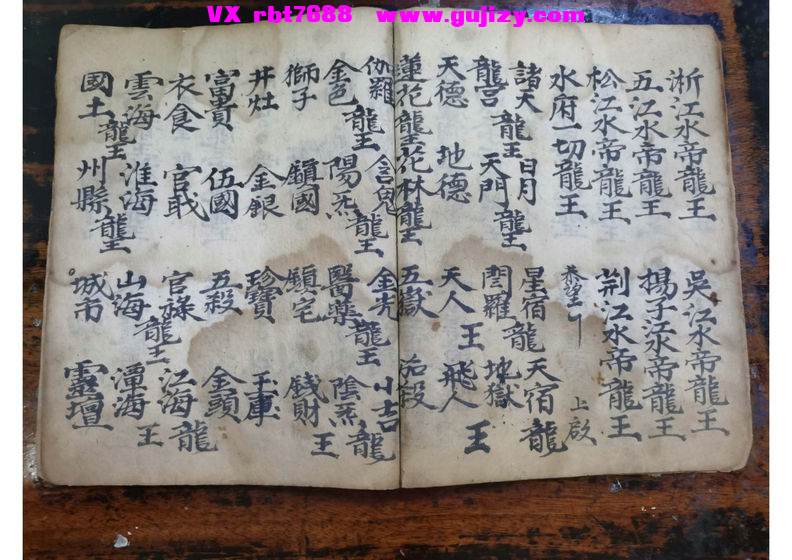 VX rbt7688 www.gujizy.com
淅江水帝龍王 吳江水帝龍王
五江水帝龍王 揚子江水帝龍王
松江水帝龍王 荊江水帝龍王
水府一切龍王 上啟
諸天 日月 星宿 天宿
龍宮 龍王 天門 龍王 閻羅 龍 地獄 龍
天德 地德 天人王 飛人王
蓮花龍 花林龍 五嶽
伽羅 金色 龍王 陽炁 龍王 金光 醫藥 龍王 陰炁 龍
獅子 鎮國 鎮宅 錢財 王
井灶 金銀 珍寶 玉庫
富貴 伍國 五殺 金頭
衣食 官職 官祿 江海 龍
雲海 龍王 淮海 山海 龍王 潭海 王
國土 州縣 龍王 城市 靈壇